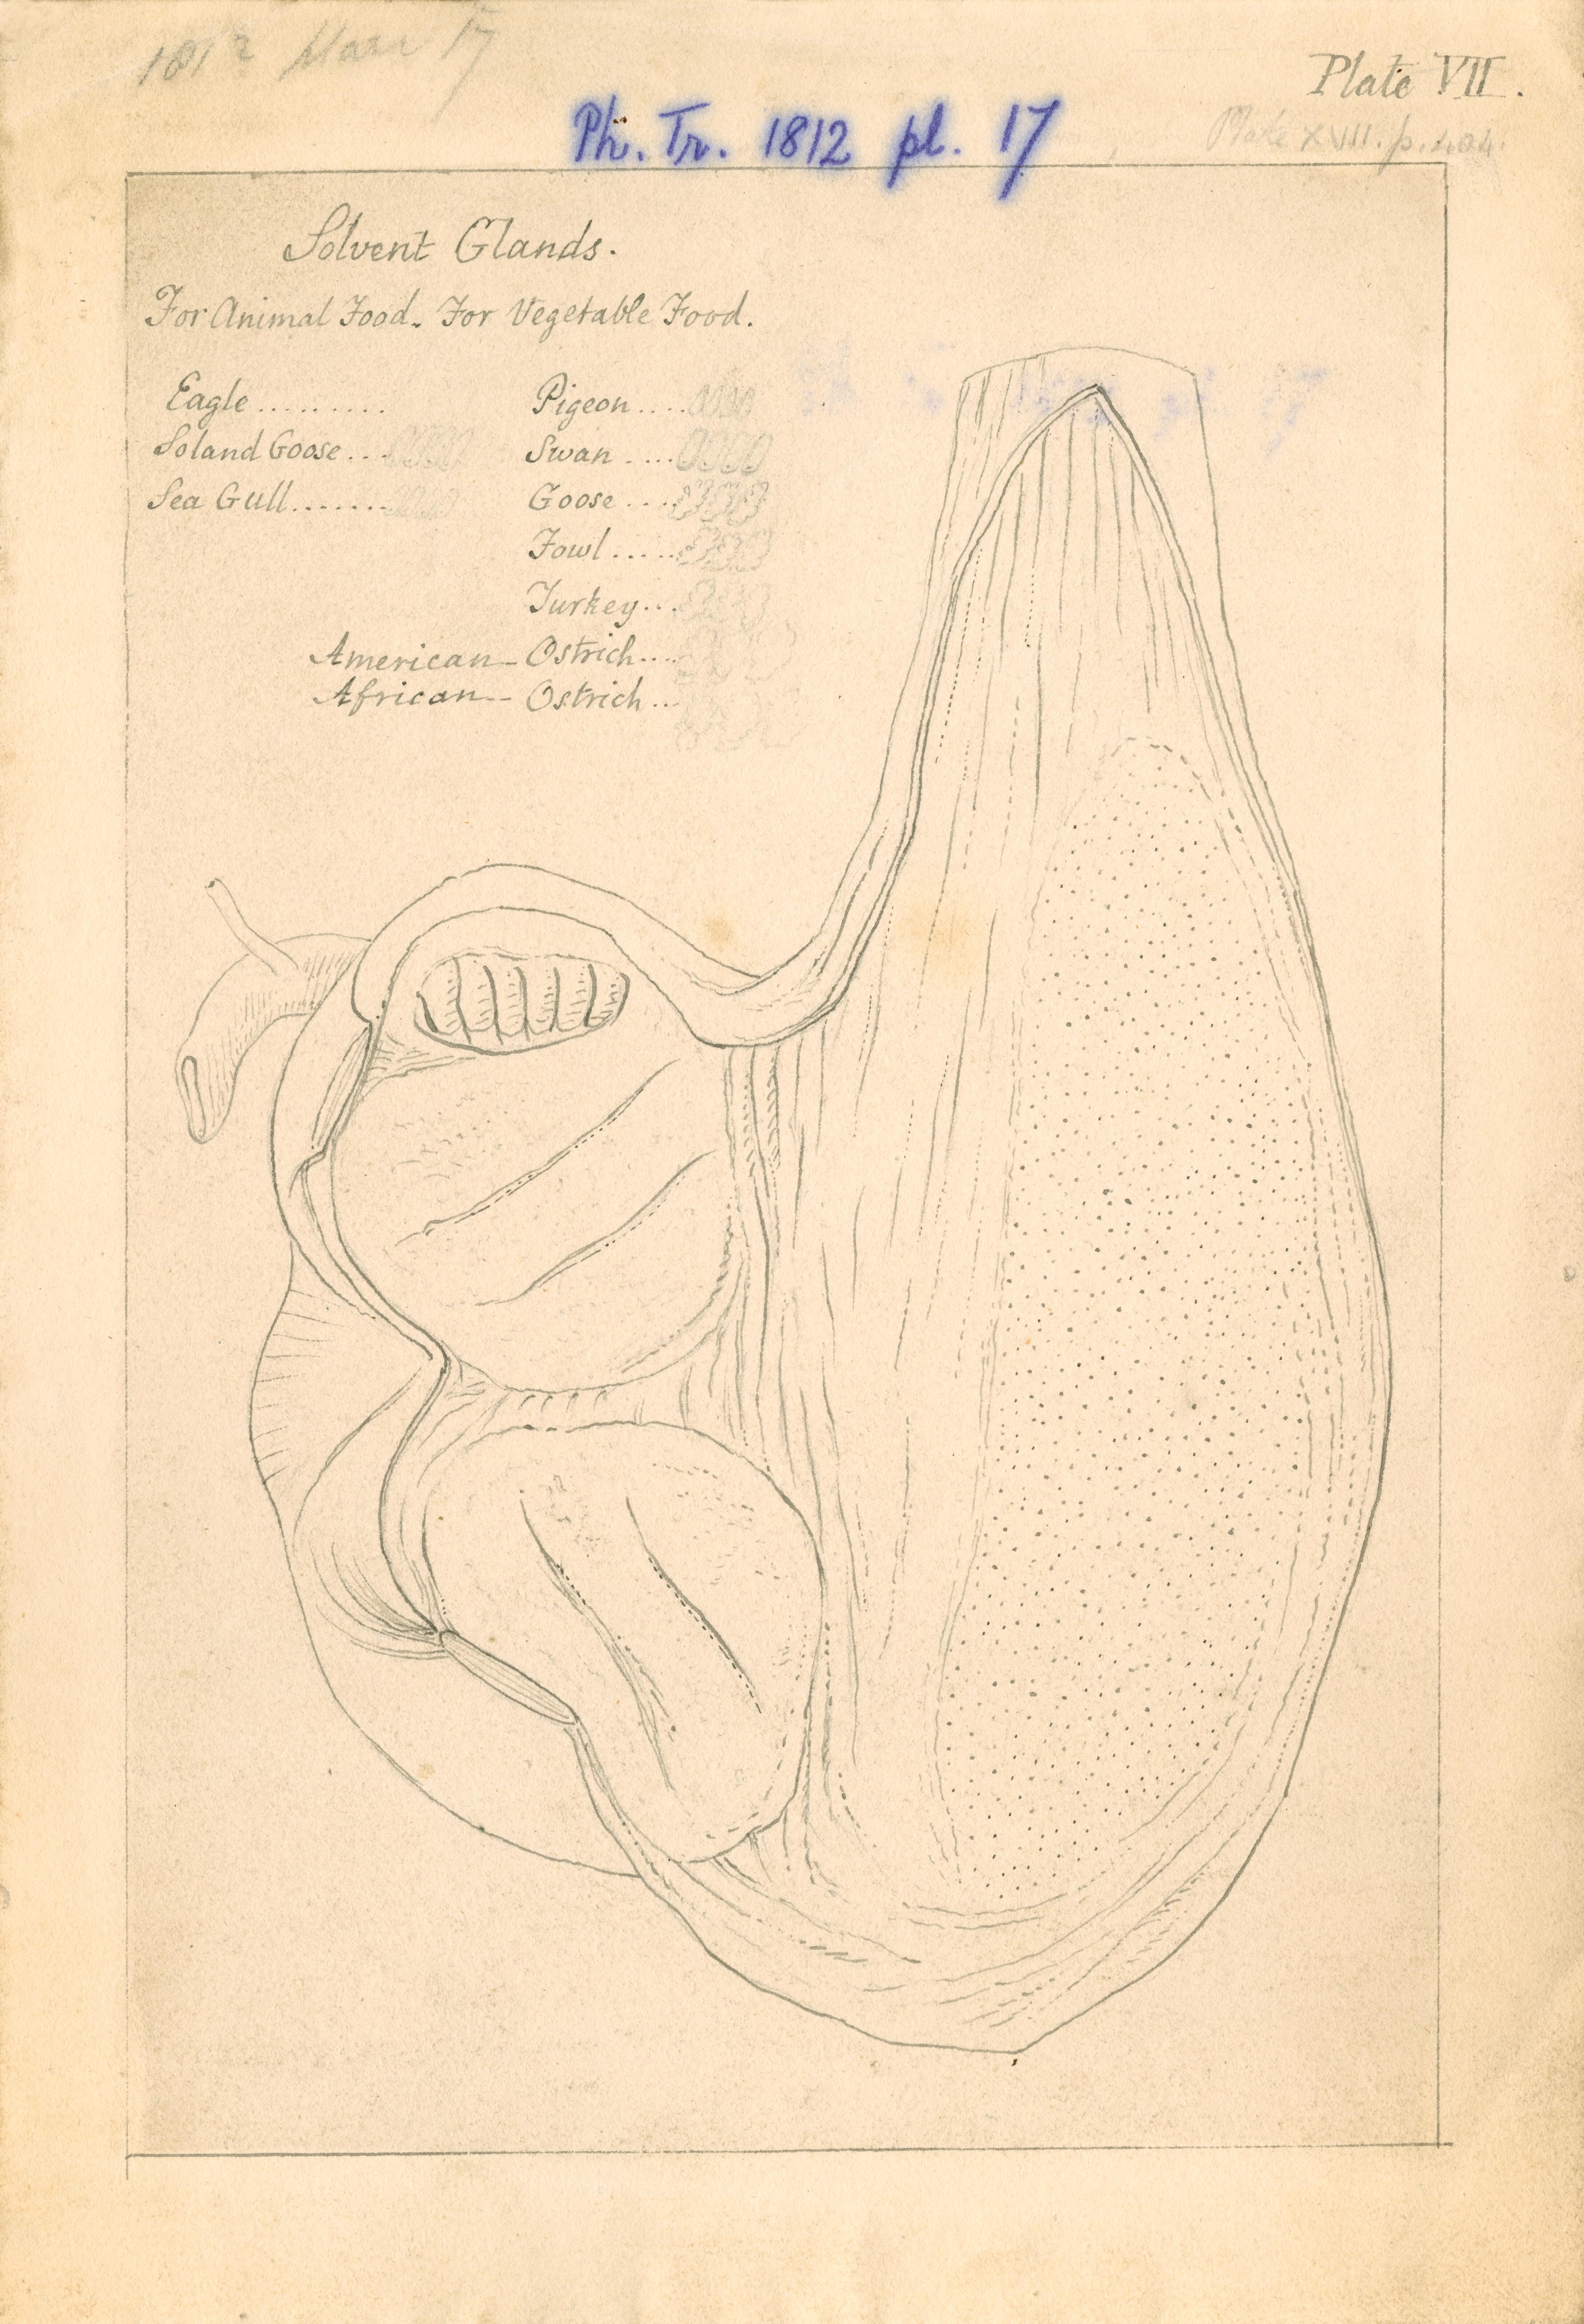 1812 Mar 17
Plate VII.
Ph. Tr. 1812 pl. 17
Plate XVII. p. 404.
Solvent Glands.
For Animal Food. For Vegetable Food.
Eagle......... Pigeon....
Soland Goose... Swan.....
Sea Gull....... Goose....
Fowl.....
Turkey...
American-Ostrich....
African--Ostrich...